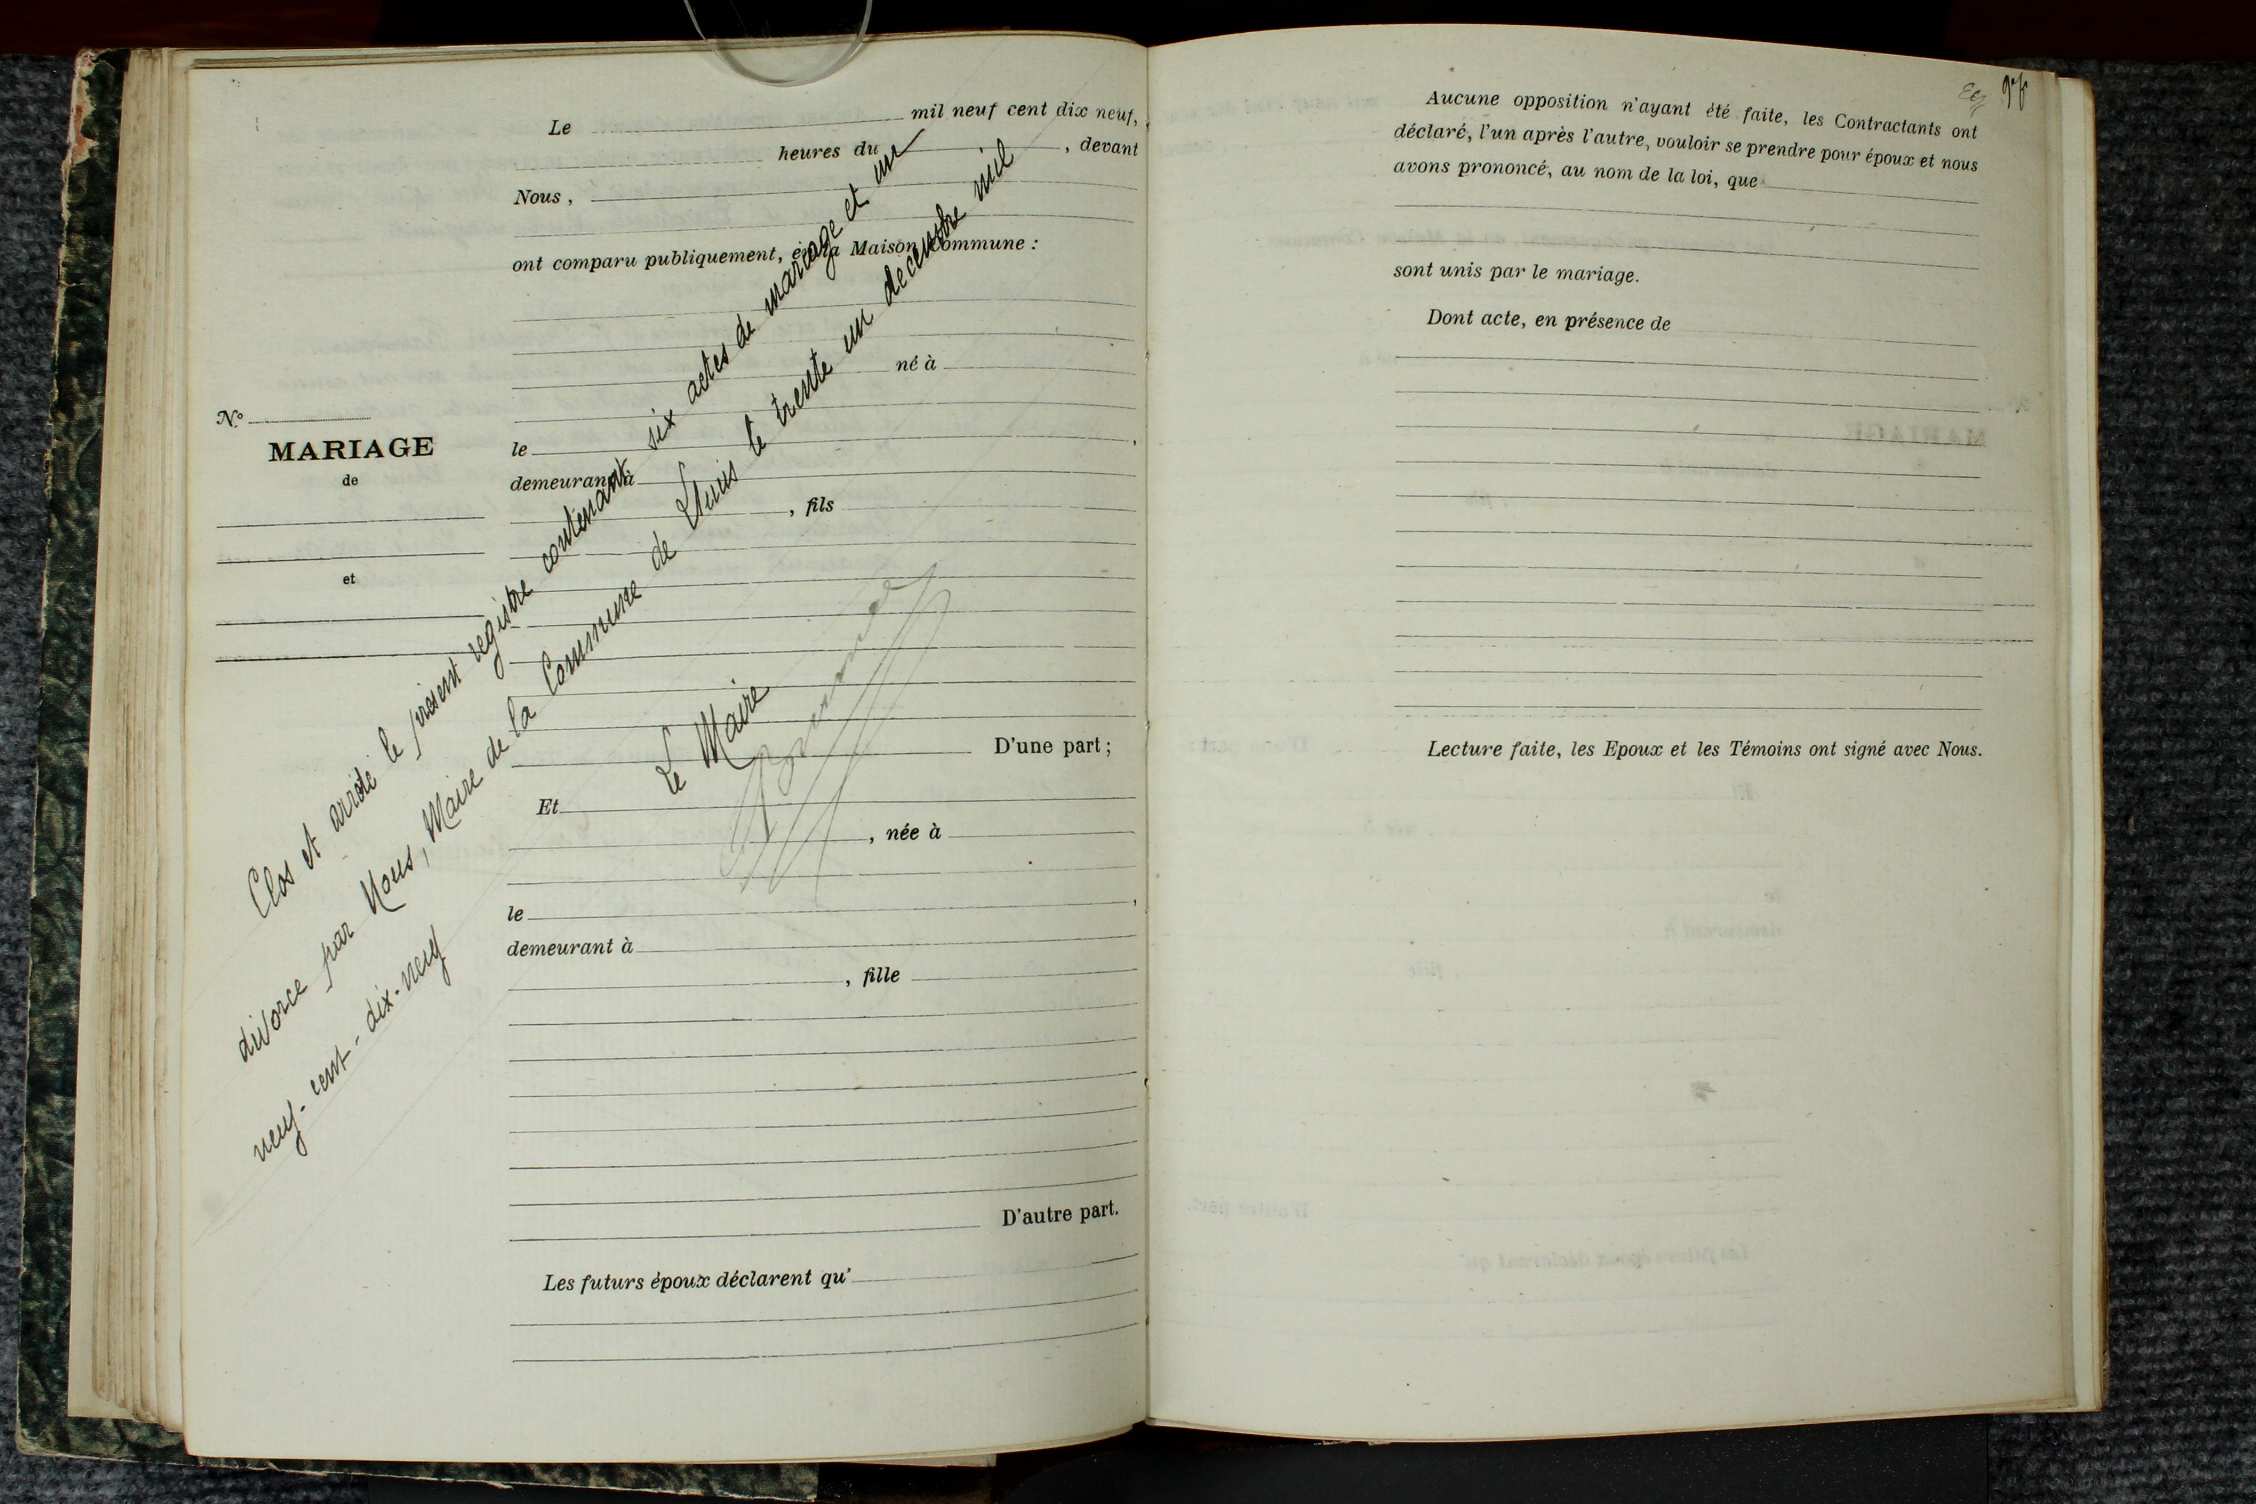 Le mil neuf cent dix neuf,
heures du , devant
Nous ,
ont comparu publiquement, en la Maison Commune :
né à
N°
MARIAGE
de
et
le ,
demeurant à
, fils
D'une part ;
Et
, née à
le ,
demeurant à
, fille
D'autre part.
Les futurs époux déclarent qu'
Clos et arrêté le présent registre contenant six actes de mariage et un
divorce par Nous, Maire de la Commune de le trente un decembre mil
neuf-cent-dix-neuf
Le Maire
Aucune opposition n'ayant été faite, les Contractants ont
déclaré, l'un après l'autre, vouloir se prendre pour époux et nous
avons prononcé, au nom de la loi, que
sont unis par le mariage.
Dont acte, en présence de
Lecture faite, les Epoux et les Témoins ont signé avec Nous.